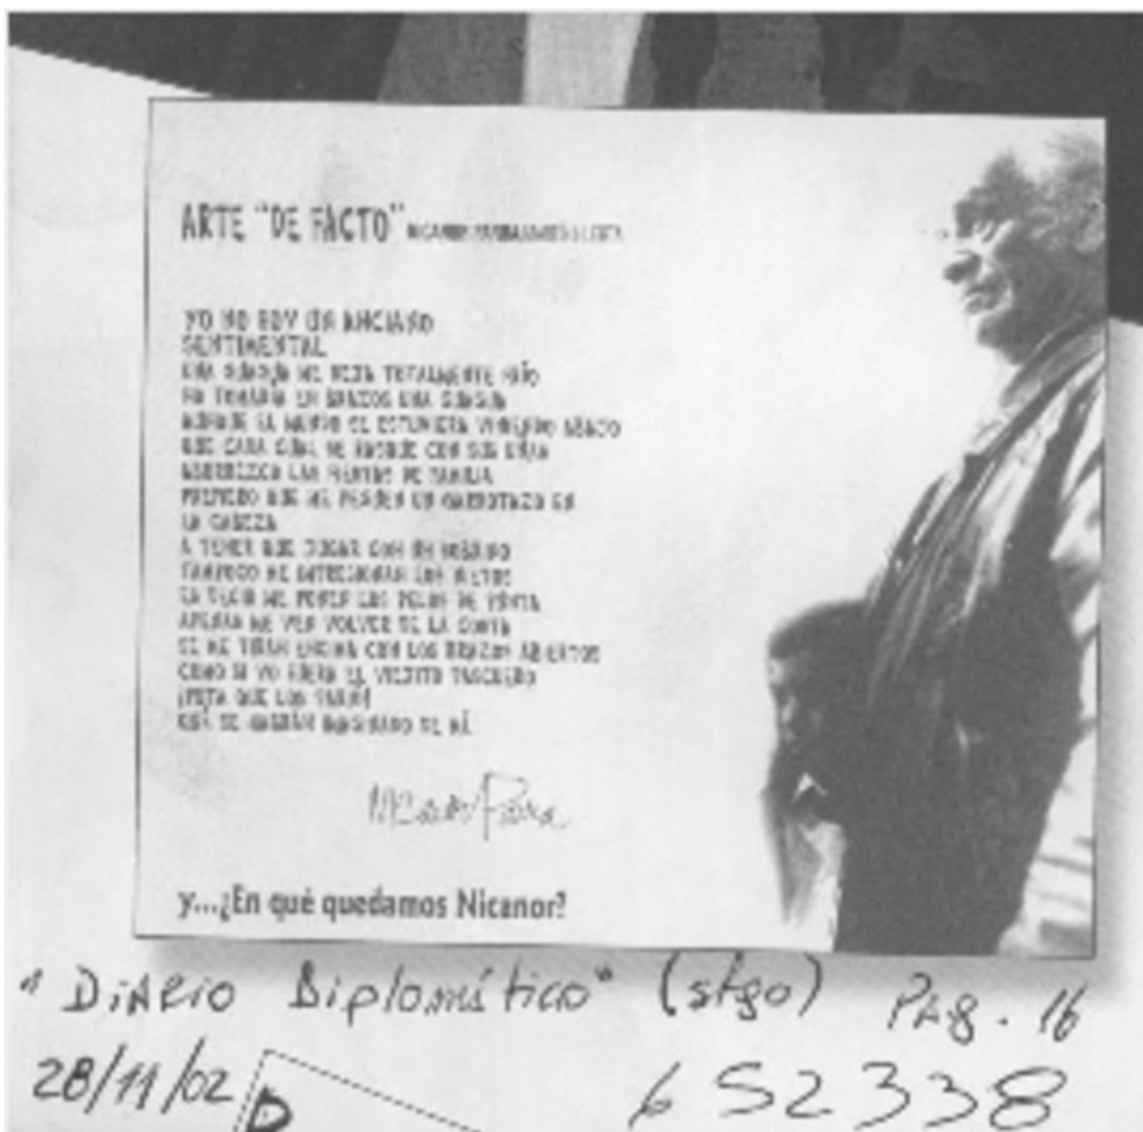 ARTE "DE FACTO"
YO NO SOY UN ANCIANO
SENTIMENTAL
UNA ME DEJA TOTALMENTE FRÍO
NO TOMARÍA EN BRAZOS UNA
AUNQUE EL MUNDO SE ESTUVIERA VINIENDO ABAJO
QUE CADA CUAL SE RASQUE CON SUS UÑAS
ABORREZCO LAS FIESTAS DE FAMILIA
PREFIERO QUE ME PEGUEN UN GARROTAZO EN
LA CABEZA
A TENER QUE JUGAR CON UN SOBRINO
TAMPOCO ME IMPRESIONAN LOS NIETOS
ME PONEN LOS PELOS DE PUNTA
APENAS ME VEN VOLVER DE LA COSTA
SE ME TIRAN ENCIMA CON LOS BRAZOS ABIERTOS
COMO SI YO FUERA EL VIEJITO PASCUERO
¡PUTA QUE LOS PARIÓ!
QUÉ SE HABRÁN IMAGINADO DE MÍ
Nicanor Parra
y...¿En qué quedamos Nicanor?
"Diario Diplomático" (stgo) Pág. 16
28/11/02 652338